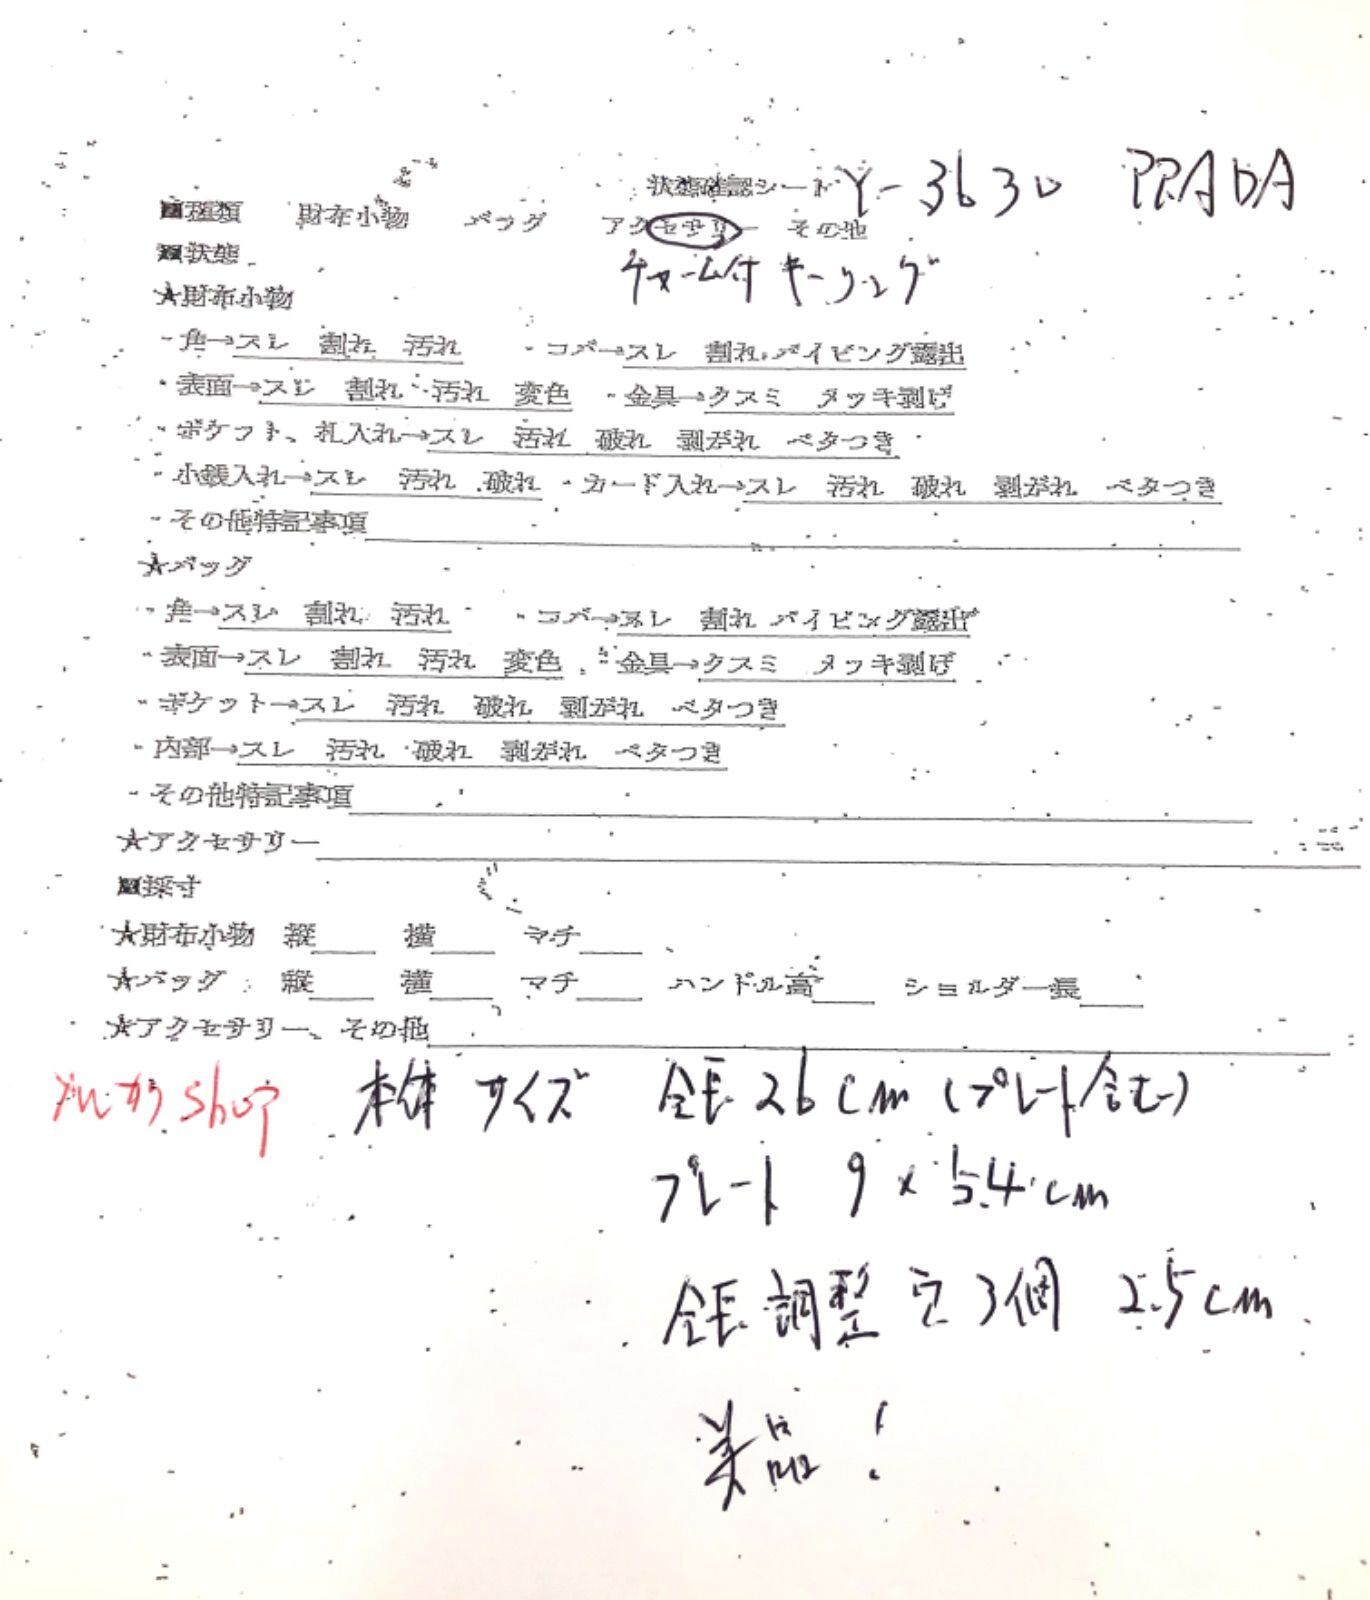 状態確認シート Y-3630 PRADA
■種類 財布小物 バッグ アクセサリー その他
■状態 チャーム付キーリング
★財布小物
・角→スレ 割れ 汚れ ・コバ→スレ 割れ パイピング露出
・表面→スレ 割れ 汚れ 変色 ・金具→クスミ メッキ剥げ
・ポケット、札入れ→スレ 汚れ 破れ 剥がれ ベタつき
・小銭入れ→スレ 汚れ 破れ ・カード入れ→スレ 汚れ 破れ 剥がれ ベタつき
・その他特記事項
★バッグ
・角→スレ 割れ 汚れ ・コバ→スレ 割れ パイピング露出
・表面→スレ 割れ 汚れ 変色 ・金具→クスミ メッキ剥げ
・ポケット→スレ 汚れ 破れ 剥がれ ベタつき
・内部→スレ 汚れ 破れ 剥がれ ベタつき
・その他特記事項
★アクセサリー
■採寸
★財布小物 縦 横 マチ
★バッグ 縦 横 マチ ハンドル高 ショルダー長
★アクセサリー、その他
shop 本体サイズ 全長26cm(プレート含む)
プレート 9×5.4cm
全長調整穴3個 2.5cm
美品!